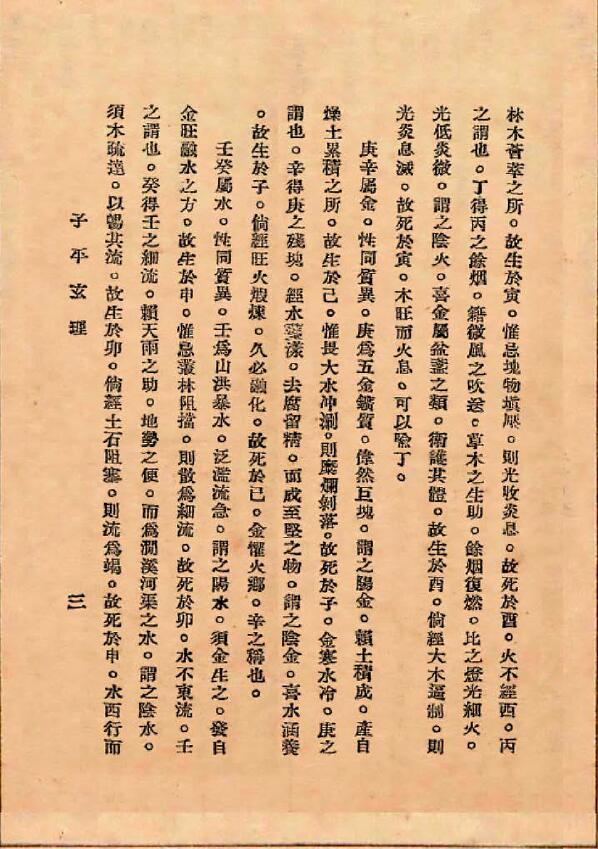 林木薈萃之所。故生於寅。惟忌塊物塡壓。則光收炎息。故死於酉。火不經西。丙
之謂也。丁得丙之餘烟。籍微風之吹送。草木之生助。餘烟復燃。比之燈光細火。
光低炎微。謂之陰火。喜金屬盆盞之類。衛護其體。故生於酉。倘經大木逼制。則
光炎息滅。故死於寅。木旺而火息。可以驗丁。
庚辛屬金。性同質異。庚爲五金鑛質。偉然巨塊。謂之陽金。賴土積成。產自
燥土累積之所。故生於己。惟畏大水冲涮。則糜爛剝落。故死於子。金寒水冷。庚之
謂也。辛得庚之殘塊。經水漾。去腐留精。而成至堅之物。謂之陰金。喜水涵養
。故生於子。倘經旺火煆煉。久必融化。故死於已。金懼火鄉。辛之稱也。
壬癸屬水。性同質異。壬爲山洪暴水。泛濫流急。謂之陽水。須金生之。發自
金旺融水之方。故生於申。惟忌叢林阻擋。則散爲細流。故死於卯。水不東流。壬
之謂也。癸得壬之細流。賴天雨之助。地勢之便。而爲澗溪河渠之水。謂之陰水。
須木疏達。以暢其流。故生於卯。倘經土石阻塞。則流爲竭。故死於申。水西行而
子平玄理
三